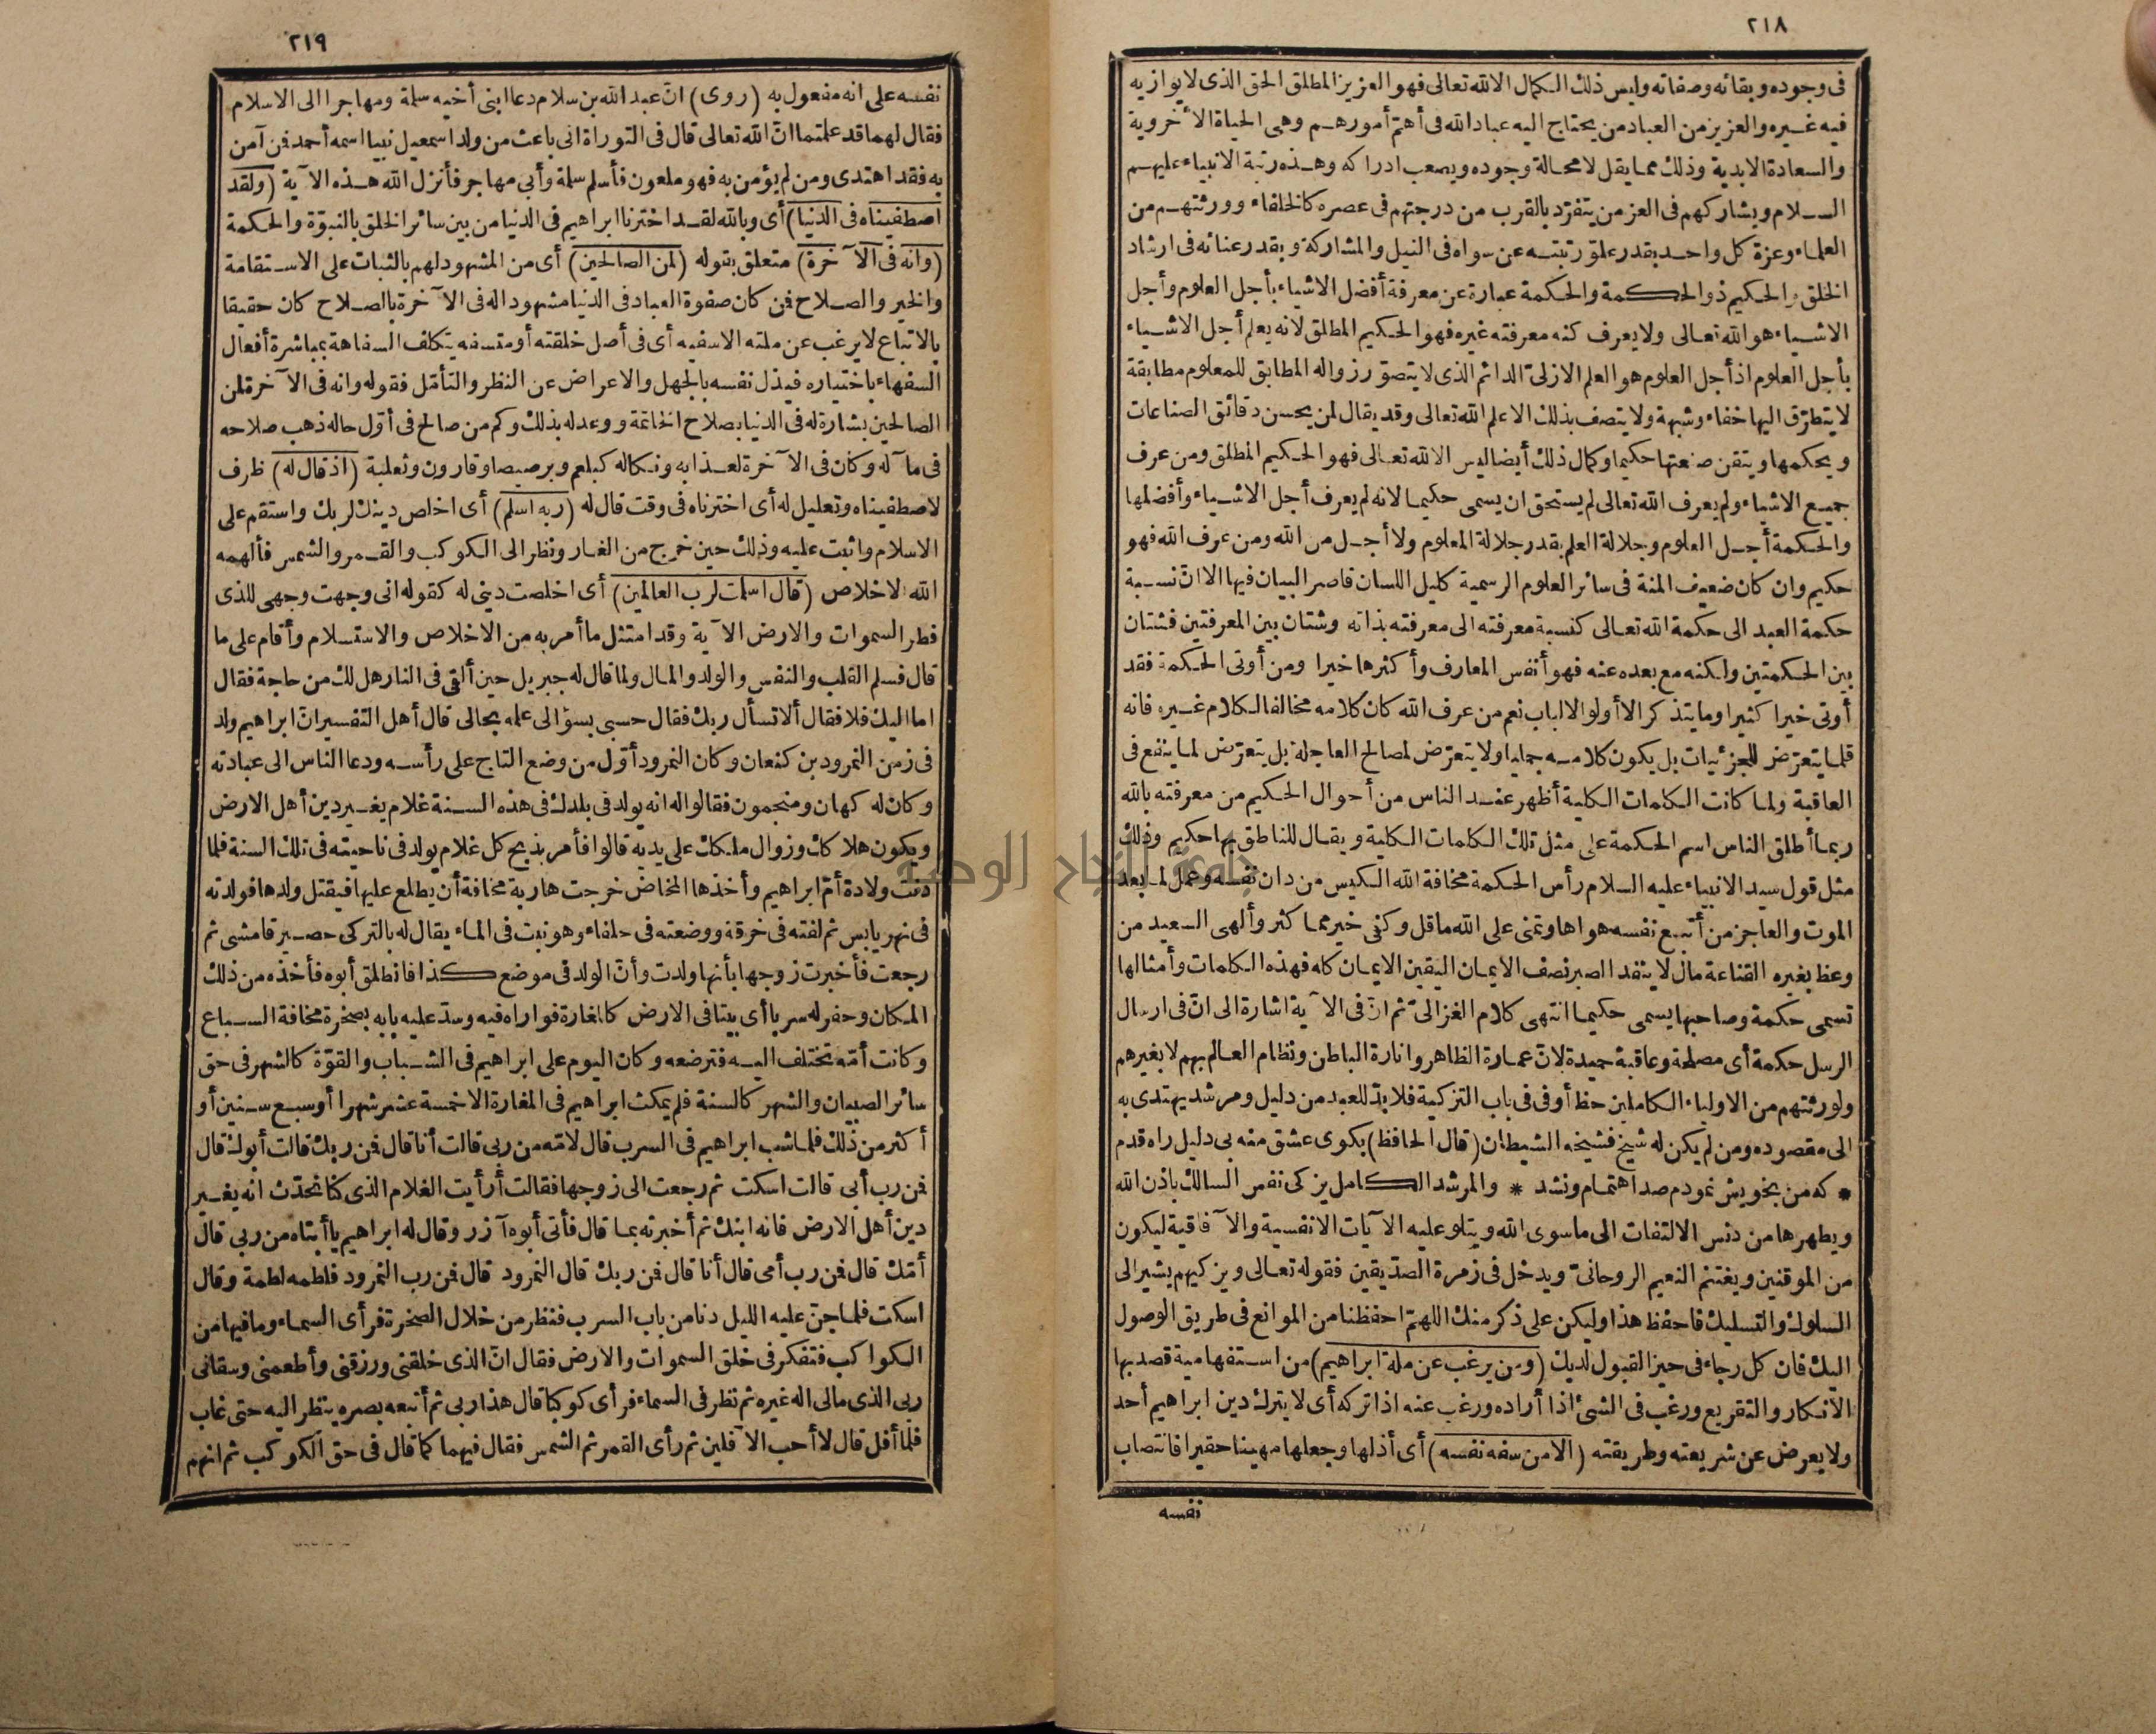 ٢١٨
فى وجوده وبقائه وصفاته وليس ذلك الكمال الا لله تعالى فهو العزيز المطلق الحق الذى لا يوازيه
فيه غيره والعزيز من العباد من يحتاج اليه عباد الله فى أهمّ أمورهم وهى الحياة الأخروية
والسعادة الابدية وذلك مما يقل لا محالة وجوده ويصعب ادراكه وهذه رتبة الانبياء عليهم
السلام ويشاركهم فى العز من يتفرّد بالقرب من درجتهم فى عصره كالخلفاء وورثتهم من
العلماء وعزة كل واحد بقدر علوّ رتبته عن سواه فى النيل والمشاركة وبقدر عنائه فى ارشاد
الخلق والحكيم ذو الحكمة والحكمة عبارة عن معرفة أفضل الاشياء بأجل العلوم وأجل
الاشياء هو الله تعالى ولا يعرف كنه معرفته غيره فهو الحكيم المطلق لانه يعلم أجل الاشياء
بأجل العلوم اذ أجل العلوم هو العلم الازلىّ الدائم الذى لا يتصوّر زواله المطابق للمعلوم مطابقة
لا يتطرّق اليها خفاء وشبهة ولا يتصف بذلك الا علم الله تعالى وقد يقال لمن يحسن دقائق الصناعات
ويحكمها ويتقن صنعتها حكيما وكمال ذلك أيضا ليس الا لله تعالى فهو الحكيم المطلق ومن عرف
جميع الاشياء ولم يعرف الله تعالى لم يستحق ان يسمى حكيما لانه لم يعرف أجل الاشياء وأفضلها
والحكمة أجل العلوم وجلالة العلم بقدر جلالة المعلوم ولا أجل من الله ومن عرف الله فهو
حكيم وان كان ضعيف المنة فى سائر العلوم الرسمية كليل اللسان قاصر البيان فيها الا انّ نسبة
حكمة العبد الى حكمة الله تعالى كنسبة معرفته الى معرفته بذاته وشتان بين المعرفتين فشتان
بين الحكمتين ولكنه مع بعده عنه فهو أنفس المعارف وأكثرها خيرا ومن أوتى الحكمة فقد
أوتى خيرا كثيرا وما يتذكر الا أولو الالباب نعم من عرف الله كان كلامه مخالفا لكلام غيره فانه
قلما يتعرّض للجزئيات بل يكون كلامه جمليا ولا يتعرّض لمصالح العاجلة بل يتعرّض لما ينفع فى
العاقبة ولما كانت الكلمات الكلية أظهر عند الناس من أحوال الحكيم من معرفته بالله
ربما أطلق الناس اسم الحكمة على مثل تلك الكلمات الكلية ويقال للناطق بها حكيم وذلك
مثل قول سيد الانبياء عليه السلام رأس الحكمة مخافة الله الكيس من دان نفسه وعمل لما بعد
الموت والعاجز من أتبع نفسه هواها وتمنى على الله ما قل وكفى خير مما كثر وألهى السعيد من
وعظ بغيره القناعة مال لا ينفد الصبر نصف الايمان اليقين الايمان كله فهذه الكلمات وأمثالها
تسمى حكمة وصاحبها يسمى حكيما انتهى كلام الغزالىّ ثم انّ فى الآية اشارة الى انّ فى ارسال
الرسل حكمة أى مصلحة وعاقبة حميدة لانّ عمارة الظاهر وانارة الباطن ونظام العالم بهم لا بغيرهم
ولورثتهم من الاولياء الكاملين حظ أوفى فى باب التزكية فلا بدّ للعبد من دليل ومرشد يهتدى به
الى مقصوده ومن لم يكن له شيخ فشيخه الشيطان (قال الحافظ) بكوى عشق منه بى دليل راه قدم
* كه من بخويش نمودم صد اهتمام ونشد * والمرشد الكامل يزكى نفس السالك باذن الله
ويطهرها من دنس الالتفات الى ما سوى الله ويتلو عليه الآيات الانفسية والآفاقية ليكون
من الموقنين ويغتنم النعيم الروحانىّ ويدخل فى زمرة الصدّيقين فقوله تعالى ويزكيهم يشير الى
السلوك والتسليك فاحفظ هذا وليكن على ذكر منك اللهمّ احفظنا من الموانع فى طريق الوصول
اليك فان كل رجاء فى حيز القبول لديك (ومن يرغب عن ملة ابراهيم) من استفهامية قصد بها
الانكار والتقريع ورغب فى الشئ اذا أراده ورغب عنه اذا تركه أى لا يترك دين ابراهيم أحد
ولا يعرض عن شريعته وطريقته (الا من سفه نفسه) أى أذلها وجعلها مهينا حقيرا فانتصاب
نفسه
٢١٩
نفسه على انه مفعول به (روى) انّ عبد الله بن سلام دعا ابنى أخيه سلمة ومهاجرا الى الاسلام
فقال لهما قد علمتما انّ الله تعالى قال فى التوراة انى باعث من ولد اسمعيل نبيا اسمه أحمد فمن آمن
به فقد اهتدى ومن لم يؤمن به فهو ملعون فأسلم سلمة وأبى مهاجر فأنزل الله هذه الآية (ولقد
اصطفيناه فى الدنيا) أى وبالله لقد اخترنا ابراهيم فى الدنيا من بين سائر الخلق بالنبوّة والحكمة
(وانه فى الآخرة) متعلق بقوله (لمن الصالحين) أى من المشهود لهم بالثبات على الاستقامة
والخير والصلاح فمن كان صفوة العباد فى الدنيا مشهودا له فى الآخرة بالصلاح كان حقيقا
بالاتباع لا يرغب عن ملته الا سفيه أى فى أصل خلقته أو متسفه يتكلف السفاهة بمباشرة أفعال
السفهاء باختياره فيذل نفسه بالجهل والاعراض عن النظر والتأمّل فقوله وانه فى الآخرة لمن
الصالحين بشارة له فى الدنيا بصلاح الخاتمة ووعد له بذلك وكم من صالح فى أوّل حاله ذهب صلاحه
فى مآله وكان فى الآخرة لعذابه ونكاله كبلعم وبرصيصا وقارون وثعلبة (اذ قال له) ظرف
لاصطفيناه وتعليل له أى اخترناه فى وقت قال له (ربه اسلم) أى اخلص دينك لربك واستقم على
الاسلام واثبت عليه وذلك حين خرج من الغار ونظر الى الكوكب والقمر والشمس فألهمه
الله الاخلاص (قال اسلمت لرب العالمين) أى اخلصت دينى له كقوله انى وجهت وجهى للذى
فطر السموات والارض الآية وقد امتثل ما أمر به من الاخلاص والاستسلام وأقام على ما
قال فسلم القلب والنفس والولد والمال ولما قال له جبريل حين ألقى فى النار هل لك من حاجة فقال
اما اليك فلا فقال ألا تسأل ربك فقال حسبى بسؤالى علمه بحالى قال أهل التفسير انّ ابراهيم ولد
فى زمن النمرود بن كنعان وكان النمرود أوّل من وضع التاج على رأسه ودعا الناس الى عبادته
وكان له كهان ومنجمون فقالوا له انه يولد فى بلدك فى هذه السنة غلام يغير دين أهل الارض
ويكون هلاكك وزوال ملكك على يديه قالوا فأمر بذبح كل غلام يولد فى ناحيته فى تلك السنة فلما
دنت ولادة أمّ ابراهيم وأخذها المخاض خرجت هاربة مخافة أن يطلع عليها فيقتل ولدها فولدته
فى نهر يابس ثم لفته فى خرقة ووضعته فى حلفاء وهو نبت فى الماء يقال له بالتركى حصير قامشى ثم
رجعت فأخبرت زوجها بأنها ولدت وأنّ الولد فى موضع كذا فانطلق أبوه فأخذه من ذلك
المكان وحفر له سربا أى بيتا فى الارض كالمغارة فواراه فيه وسدّ عليه بابه بصخرة مخافة السباع
وكانت أمّه تختلف اليه فترضعه وكان اليوم على ابراهيم فى الشباب والقوّة كالشهر فى حق
سائر الصبيان والشهر كالسنة فلم يمكث ابراهيم فى المغارة الا خمسة عشر شهرا أو سبع سنين أو
أكثر من ذلك فلما شب ابراهيم فى السرب قال لامّه من ربى قالت أنا قال فمن ربك قالت أبوك قال
فمن رب أبى قالت اسكت ثم رجعت الى زوجها فقالت أرأيت الغلام الذى كنا نحدّث انه يغير
دين أهل الارض فانه ابنك ثم أخبرته بما قال فأتى أبوه آزر وقال له ابراهيم يا أبتاه من ربى قال
أمّك قال فمن رب أمى قال أنا قال فمن ربك قال النمرود قال فمن رب النمرود فلطمه لطمة وقال
اسكت فلما جنّ عليه الليل دنا من باب السرب فنظر من خلال الصخرة فرأى السماء وما فيها من
الكواكب فتفكر فى خلق السموات والارض فقال انّ الذى خلقنى ورزقنى وأطعمنى وسقانى
ربى الذى مالى اله غيره ثم نظر فى السماء فرأى كوكبا قال هذا ربى ثم أتبعه بصره ينظر اليه حتى غاب
فلما أفل قال لا أحب الآفلين ثم رأى القمر ثم الشمس فقال فيهما كما قال فى حق الكوكب ثم انهم